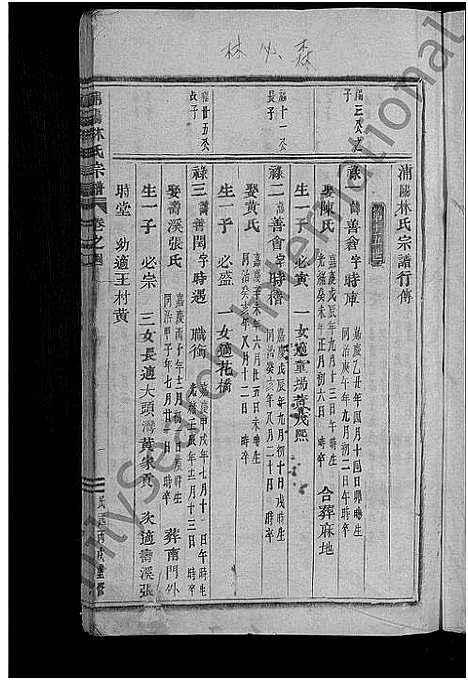 林必森
浦陽林氏宗譜行傳
福三癸之
子
祿一諱善翕字時庫 嘉慶乙丑年四月十四日卯時生
同治庚午年九月初二日午時卒
娶陳氏 嘉慶戊辰年九月十三日 時生
光緒癸未年正月初六日 時卒 合葬麻地
生一子 必寅 一女適童塢黃茂熙
福十一癸
長子
祿二諱善會字時稽 嘉慶戊辰年九月初十日戌時生
同治癸亥年又月二十日 時卒
娶黃氏 嘉慶辛未年六月廿五日未時生
同治癸亥年八月十二日 時卒
生一子 必盛 一女適花橋
福廿五癸
長子
祿三諱善閏字時遇 職銜 嘉慶甲戌年七月十一日午時生
光緒壬辰年二月十三日 時卒
娶壽溪張氏 嘉慶丙子年十二月初二日辰時生
同治甲子年七月廿三日 時卒 葬南門外
生一子 必宗 三女長適大頭灣黃象貢 次適壽溪張
時堂 幼適王村黃
浦陽林氏宗譜 卷之
FamilySearch International